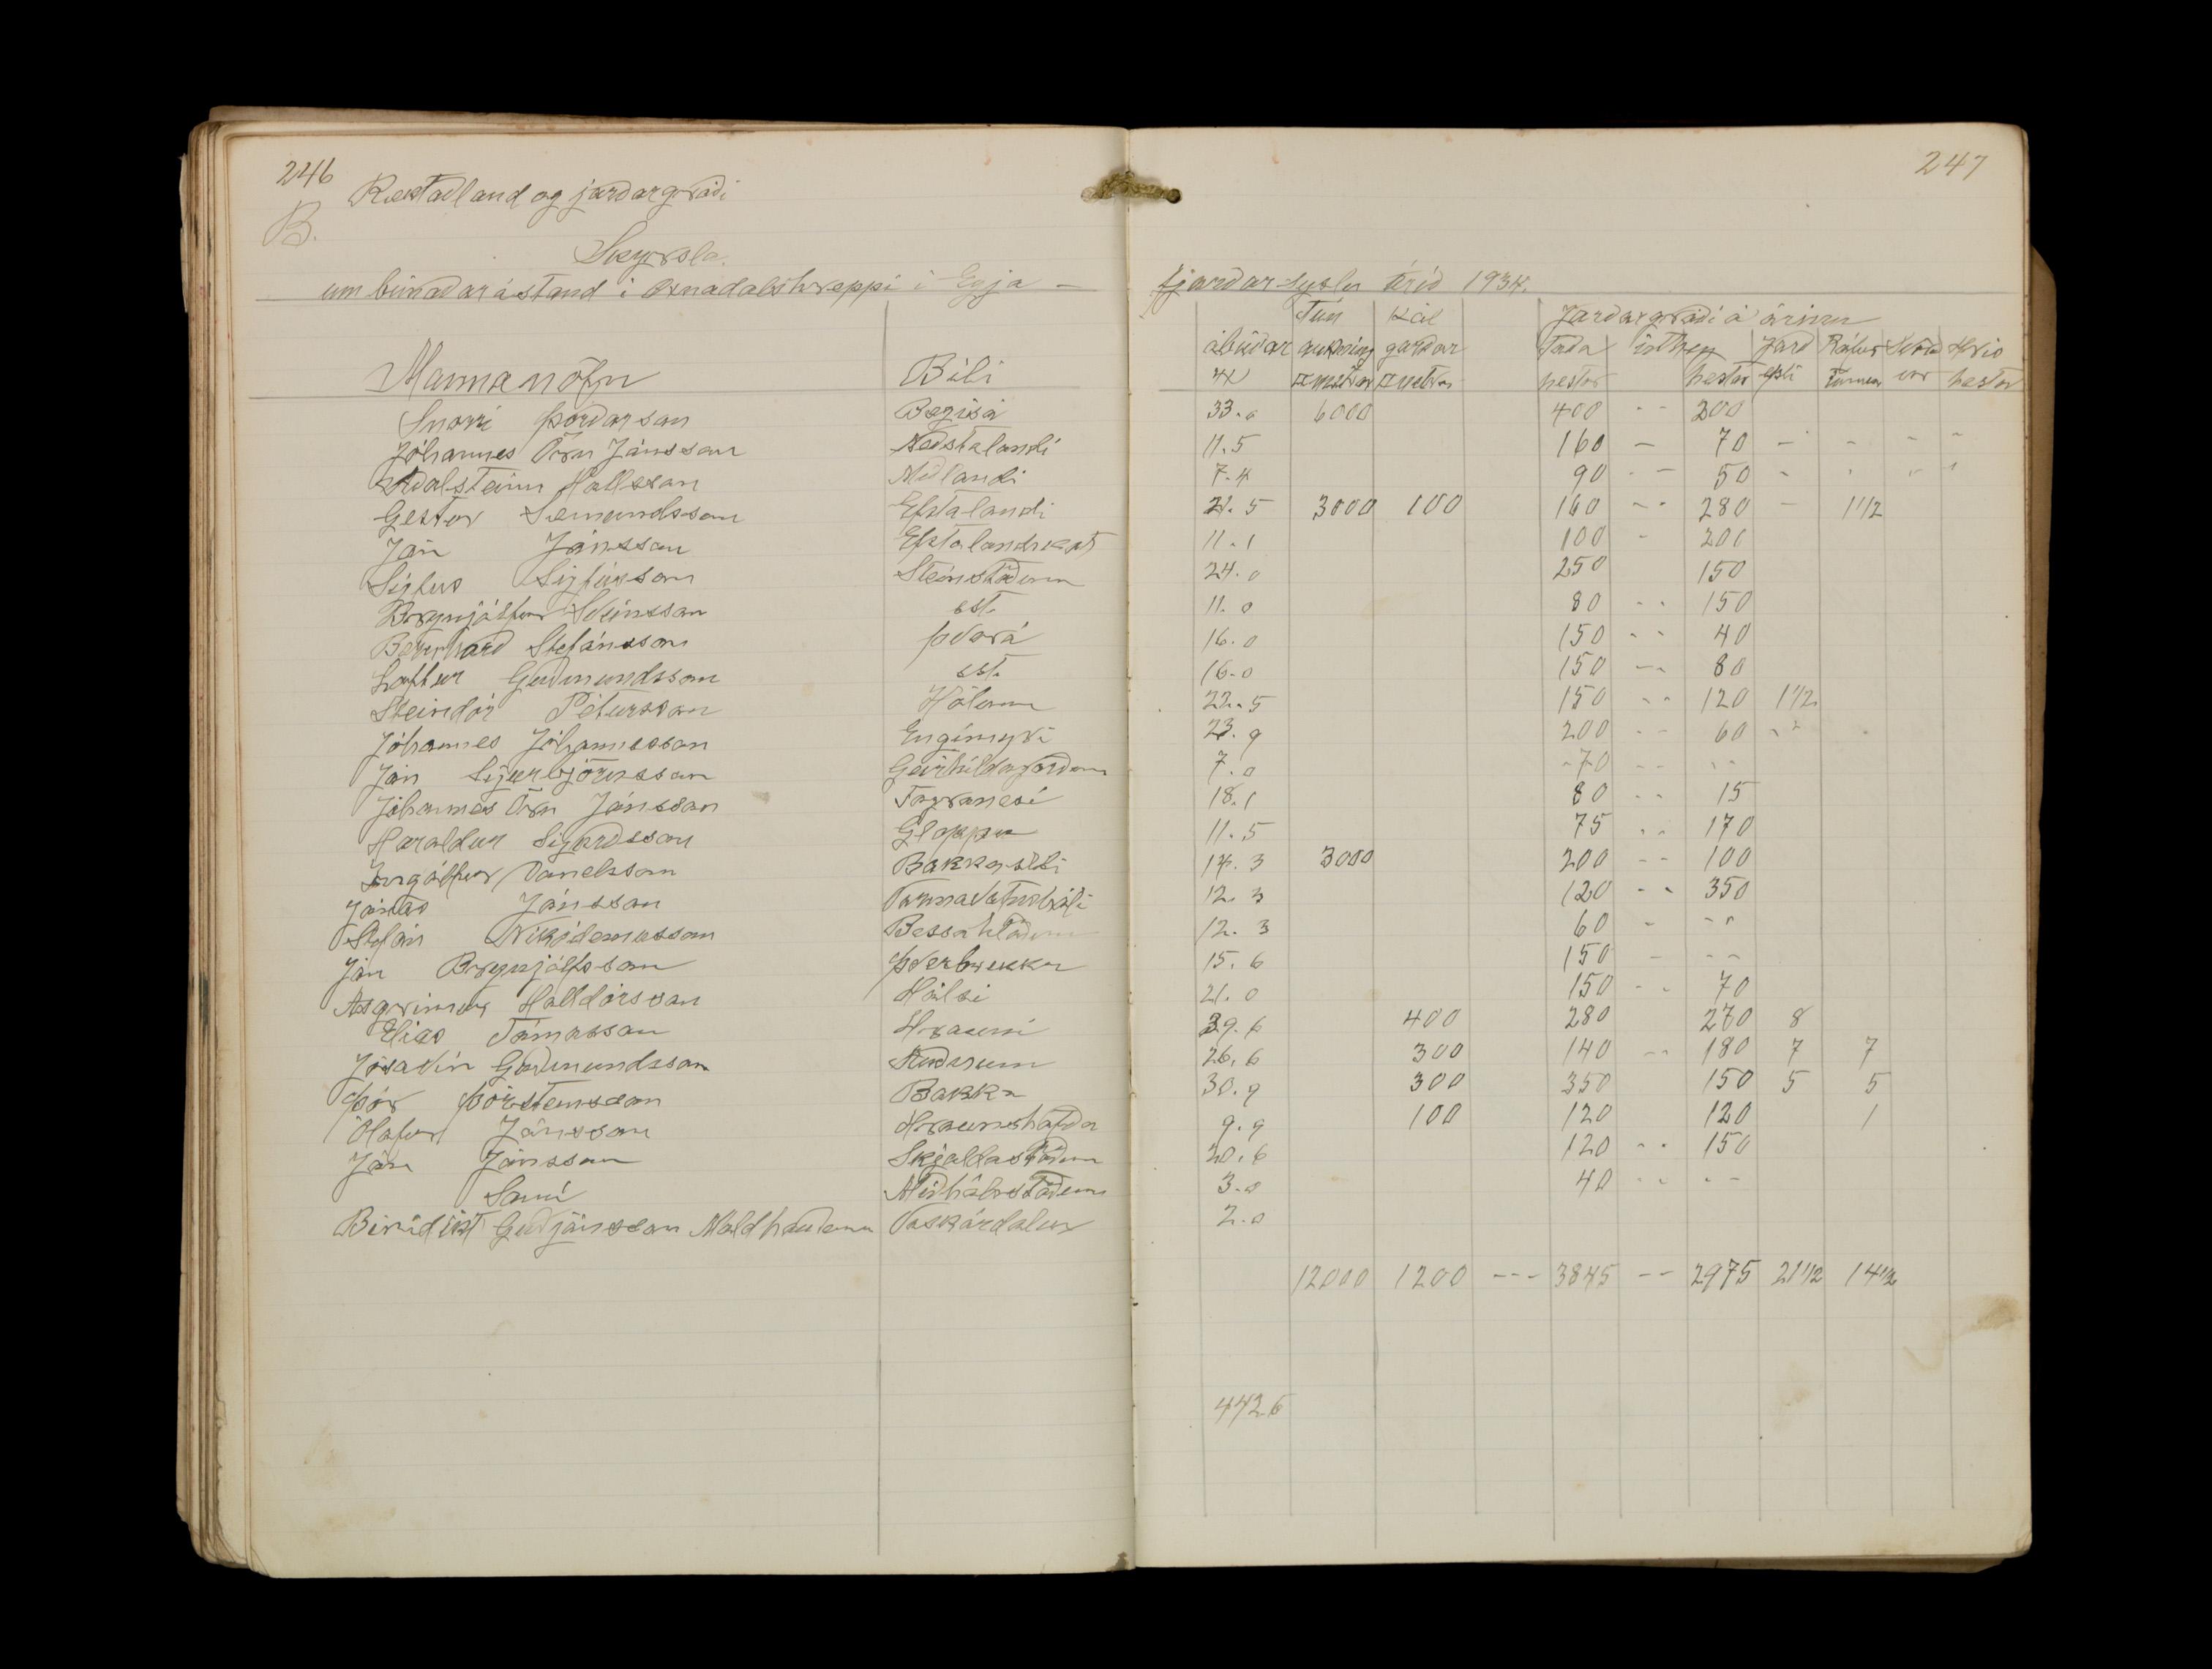 246
Ræktað land og jarðargróði
B.
Skýrsla
um búnaðarástand í Öxnadalshreppi í Eyja -
Mannanöfn Býli
Snorri Þórðarson Bægisá
Jóhannes Örn Jónsson Neðstalandi
Aðalsteinn Hallsson Miðlandi
Gestur Sæmundsson Efstalandi
Jón Jónsson Efstalandskoti
Sigfús Sigfússon Steinsstöðum
Brynjólfur Sveinsson st.
Bernharð Stefánsson Þverá
Loftur Guðmundsson st.
Steindór Pétursson Hólum
Jóhannes Jóhannesson Engimýri
Jón Sigurbjörnsson Geirhildargörðum
Jóhannes Örn Jónsson Fagranesi
Haraldur Sigurðsson Gloppu
Ingólfur Daníelsson Bakkaseli
Jónas Jónsson Varmavatnshólí
Stefán Nikódemusson Bessahlöðum
Jón Brynjólfsson Þverbrekku
Ásgrímur Halldórsson Hálsi
Elías Tómasson Hrauni
Jósavin Guðmundsson Auðnum
Þór Þorsteinsson Bakka
Ólafur Jónsson Hraunshöfða
Jón Jónsson Skjaldastöðum
Sami Miðhálsstöðum
Benidikt Guðjónsson Moldhaugum Vaskárdalur
247
fjarðarsýslu árið 1934.
Tún Kál Jarðargróði á árinu
ábúðar aukning garðar Taða úthey Jarð Rófur Svörð Hrís
hestar hestar epli Tunnur ur hestar
33.0 6000 400 -- 200
11.5 160 - 70 - - - -
7.4 90 -- 50 - - - -
21.5 3000 100 160 -- 280 - 1 1/2
11.1 100 - 200
24.0 250 150
11.0 80 -- 150
16.0 150 -- 40
16.0 150 -- 80
22.5 150 -- 120 1 1/2
23.9 200 -- 60 --
7.0 -70 -- --
18.1 80 -- 15
11.5 75 -- 170
14.3 3000 200 -- 100
12.3 120 -- 350
12.3 60 - --
15.6 150 - --
21.0 150 -- 70
39.6 400 280 270 8
26.6 300 140 -- 180 7 7
30.9 300 350 150 5 5
9.9 100 120 120 1
20.6 120 -- 150
3.0 40 -- --
2.0
12000 1200 --- 3845 -- 2975 21 1/2 14 1/2
442.6